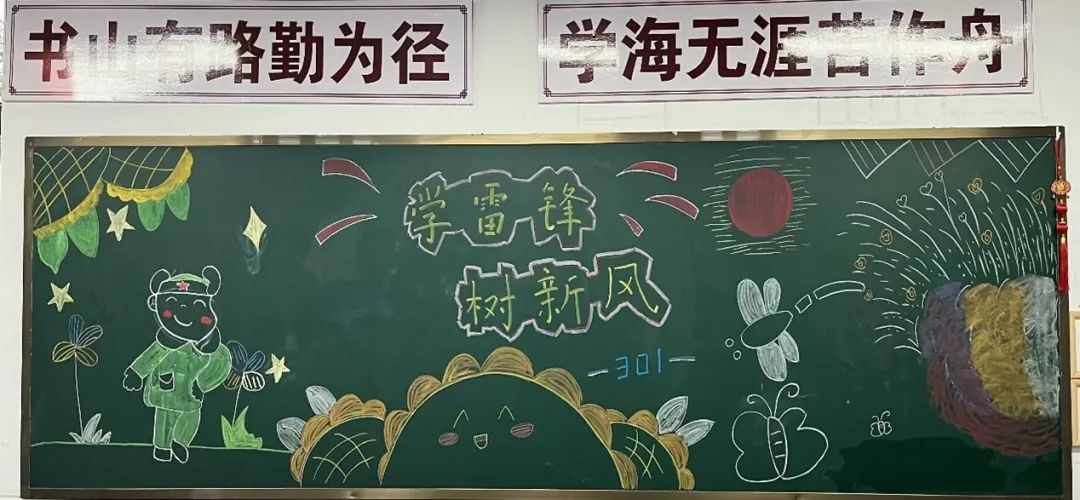 书山有路勤为径
学海无涯苦作舟
学雷锋
树新风
-301-